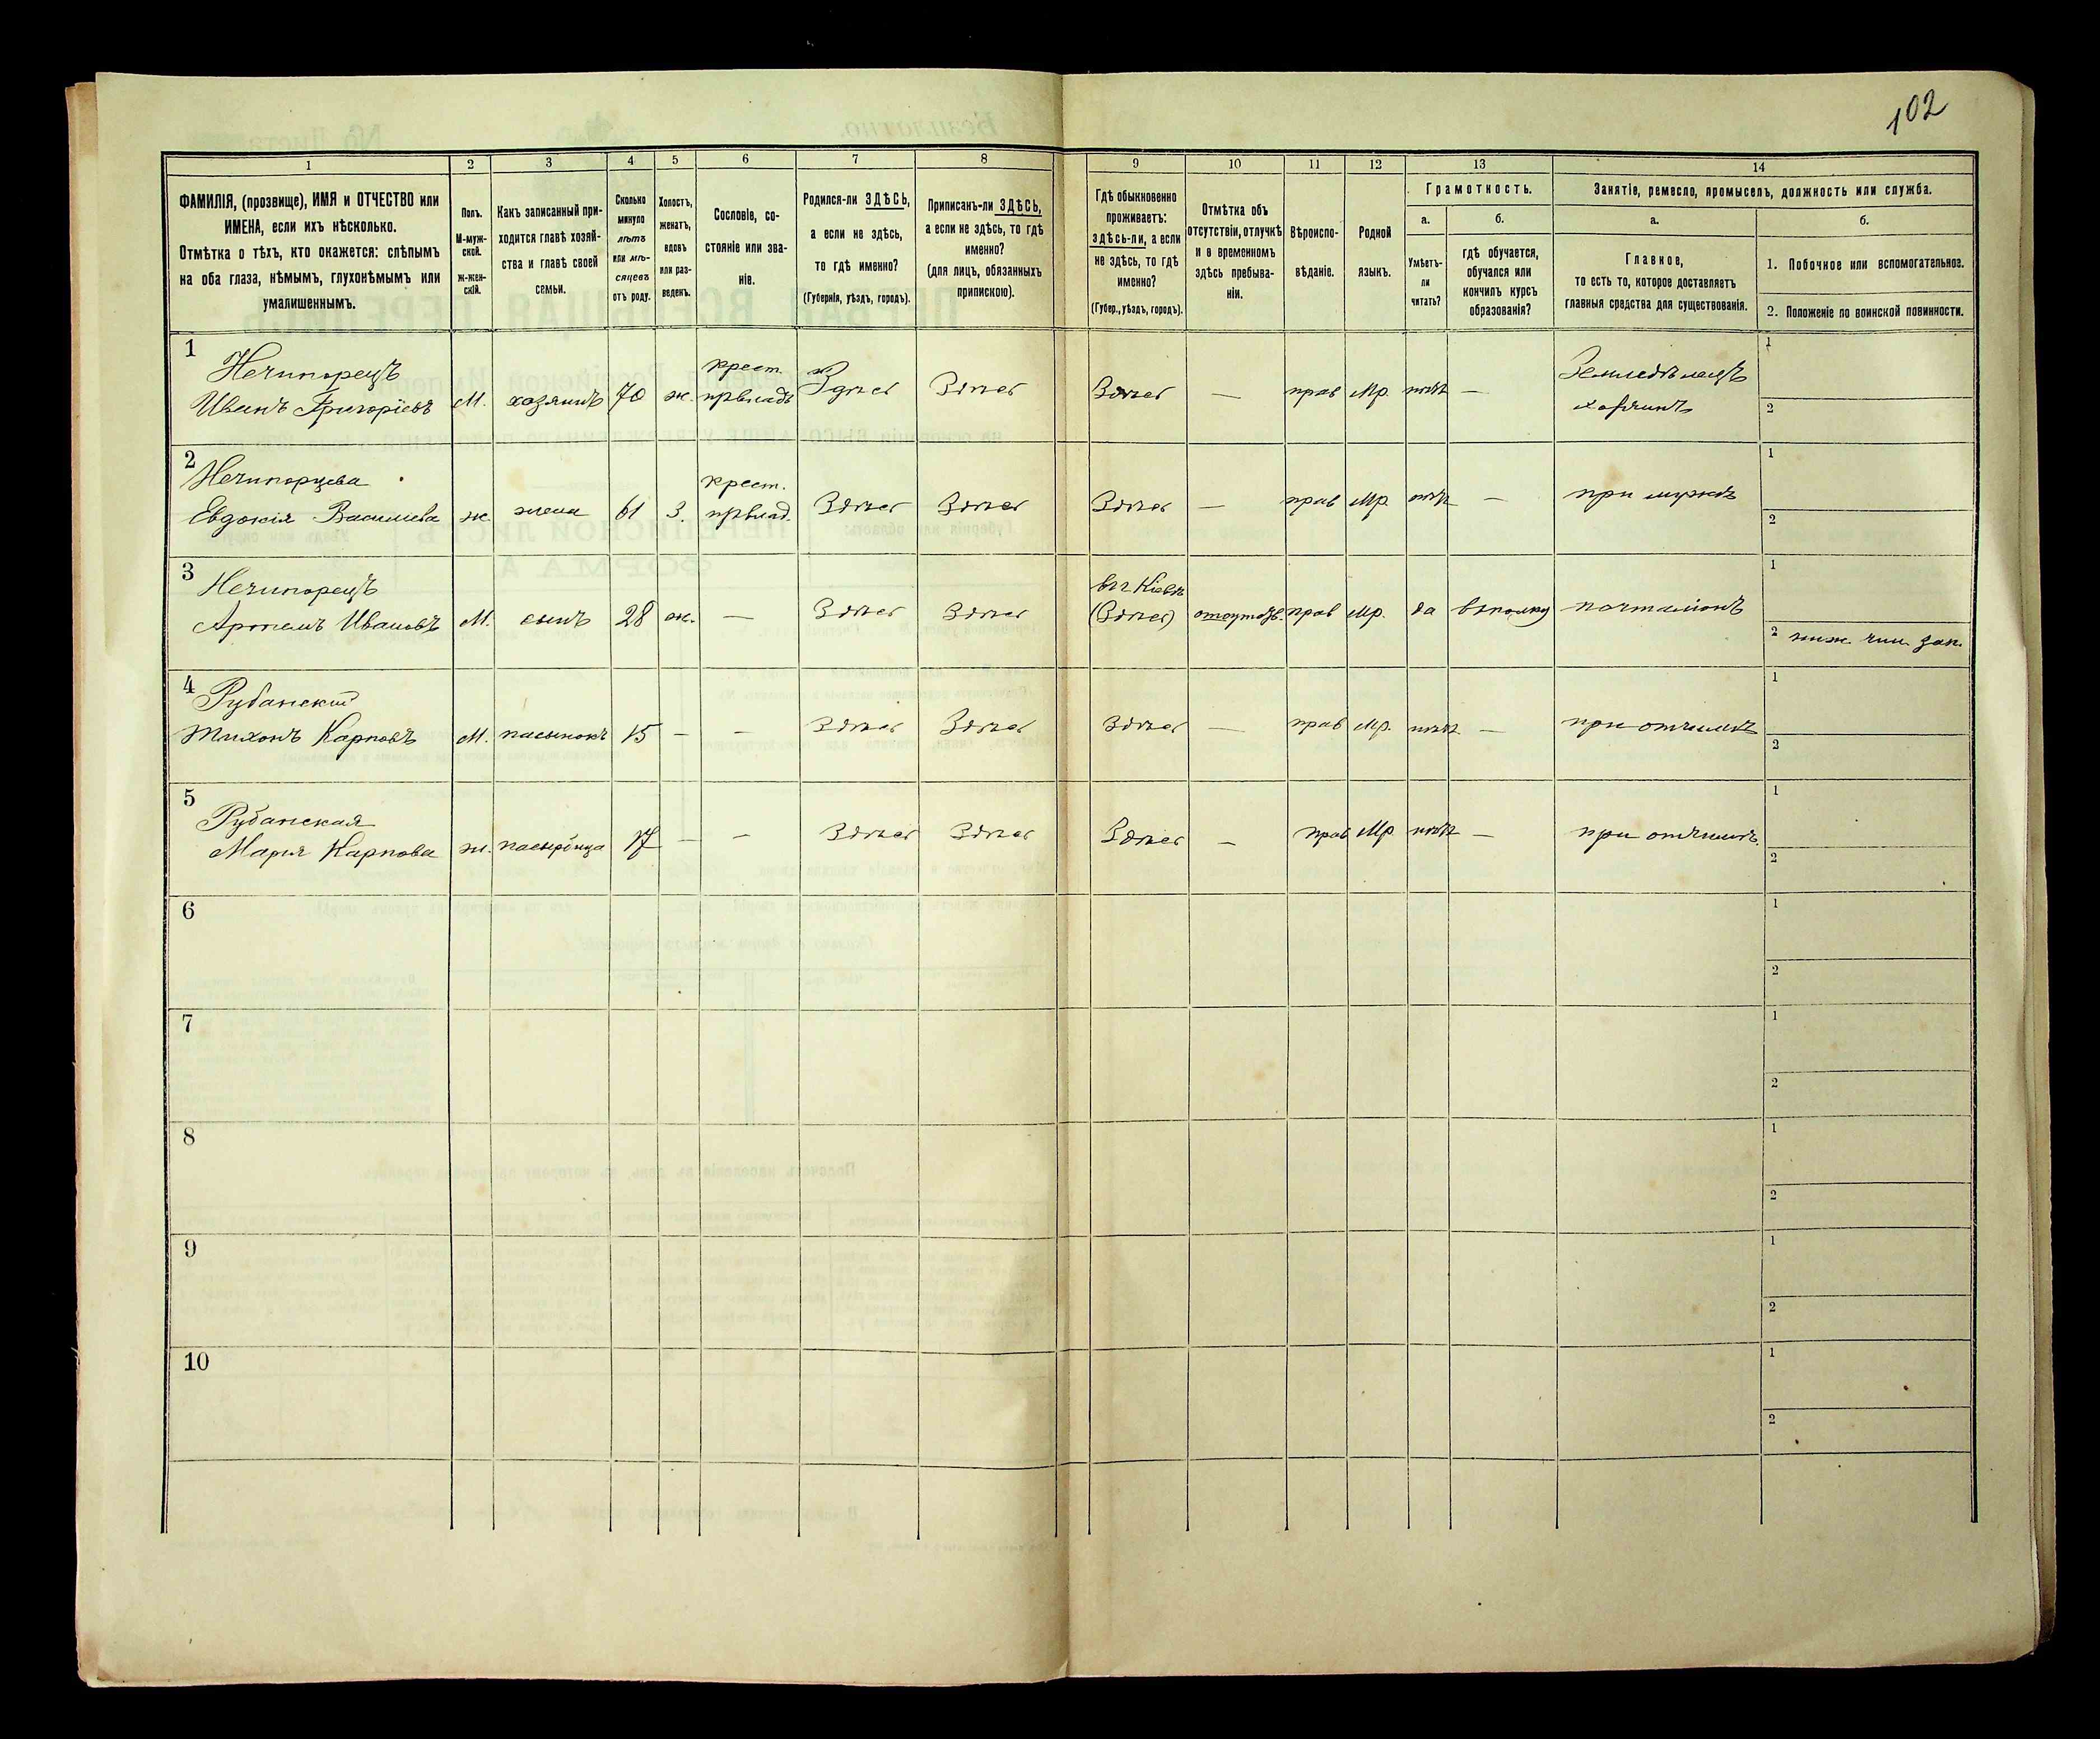 102
1 2 3 4 5 6 7 8 9 10 11 12 13 14
ФАМИЛІЯ, (прозвище), ИМЯ и ОТЧЕСТВО или
ИМЕНА, если ихъ нѣсколько.
Отмѣтка о тѣхъ, кто окажется: слѣпымъ
на оба глаза, нѣмымъ, глухонѣмымъ или
умалишеннымъ.
Полъ.
М-муж-
ской.
Ж-жен-
скій.
Какъ записанный при-
ходится главѣ хозяй-
ства и главѣ своей
семьи.
Сколько
минуло
лѣтъ
или мѣ-
сяцевъ
отъ роду.
Холостъ,
женатъ,
вдовъ
или раз-
веденъ.
Сословіе, со-
стояніе или зва-
ніе.
Родился-ли ЗДѢСЬ,
а если не здѣсь,
то гдѣ именно?
(Губернія, уѣздъ, городъ).
Приписанъ-ли ЗДѢСЬ,
а если не здѣсь, то гдѣ
именно?
(для лицъ, обязанныхъ
припискою).
Гдѣ обыкновенно
проживаетъ:
здѣсь-ли, а если
не здѣсь, то гдѣ
именно?
(Губер., уѣздъ, городъ).
Отмѣтка объ
отсутствіи, отлучкѣ
и о временномъ
здѣсь пребыва-
ніи.
Вѣроиспо-
вѣданіе.
Родной
языкъ.
Грамотность.
а.
Умѣетъ-
ли
читать?
б.
гдѣ обучается,
обучался или
кончилъ курсъ
образованія?
Занятіе, ремесло, промыселъ, должность или служба.
а.
Главное,
то есть то, которое доставляетъ
главныя средства для существованія.
б.
1. Побочное или вспомогательное.
2. Положеніе по воинской повинности.
1
Нечипорецъ крест. Земледѣлецъ 1
Иванъ Григоріевъ М. хозяинъ 70 ж. првлад Здѣсь Здѣсь Здѣсь — прав Мр. нѣтъ — хозяинъ 2
2
Нечипорцева крест. 1
Евдокія Васильева ж. жена 61 З. првлад. Здѣсь Здѣсь Здѣсь — прав Мр. нѣтъ — при мужѣ 2
3
Нечипорецъ въ Кіевѣ 1
Артемъ Ивановъ М. сынъ 28 ж. — Здѣсь Здѣсь (Здѣсь) прав Мр. да въ полку почталіонъ
2 ниж. чин. зап.
4
Рубанскій 1
Тихонъ Карповъ М. пасынокъ 15 — — Здѣсь Здѣсь Здѣсь — прав Мр. нѣтъ — при отчимѣ 2
5
Рубанская 1
Марія Карпова ж. 17 — — Здѣсь Здѣсь Здѣсь — прав Мр нѣтъ — при отчимѣ. 2
6 1
2
7 1
2
8 1
2
9 1
2
10 1
2